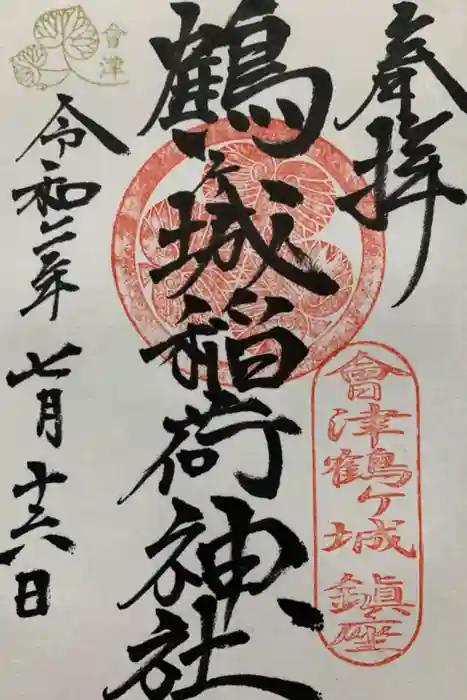 奉拝
鶴ヶ城稲荷神社
會津鶴ケ城鎮座
令和二年
七月十六日
會津